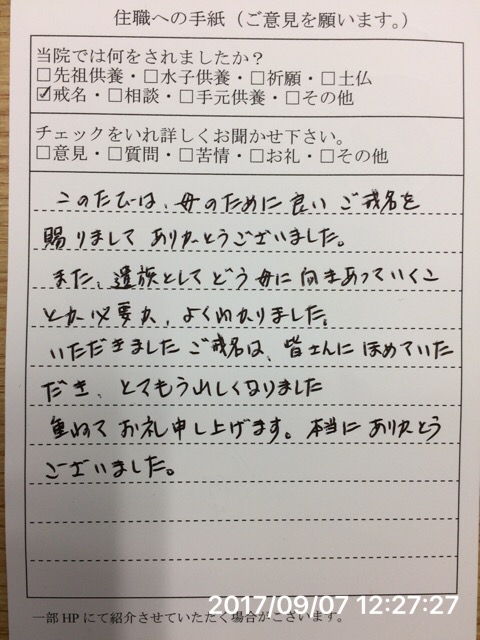 住職への手紙（ご意見を願います。）
当院では何をされましたか？
□先祖供養・□水子供養・□祈願・□土仏
☑戒名・□相談・□手元供養・□その他
チェックをいれ詳しくお聞かせ下さい。
□意見・□質問・□苦情・□お礼・□その他
このたびは、母のために良いご戒名を
賜りまして ありがとうございました。
また、遺族としてどう母に向きあっていくこ
とが必要か、よくわかりました。
いただきましたご戒名は、皆さんにほめていた
だき、とてもうれしくなりました
重ねてお礼申し上げます。本当にありがとう
ございました。
2017/09/07 12:27:27
一部HPにて紹介させていただく場合がございます。